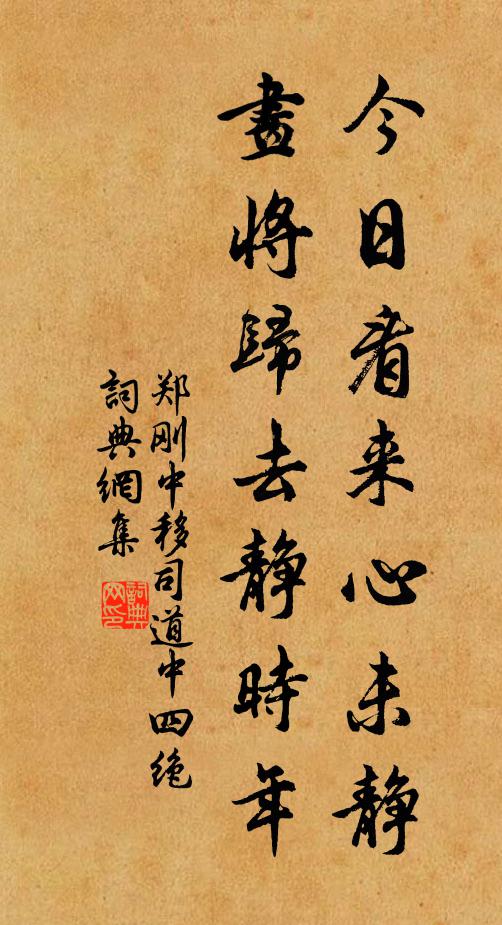 今日看来心未静
畫將歸去静時年
郑刚中移司道中四绝
詞典網集
詞典网印